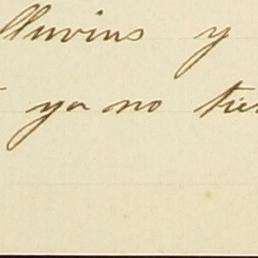 lluvias y
ya no tie